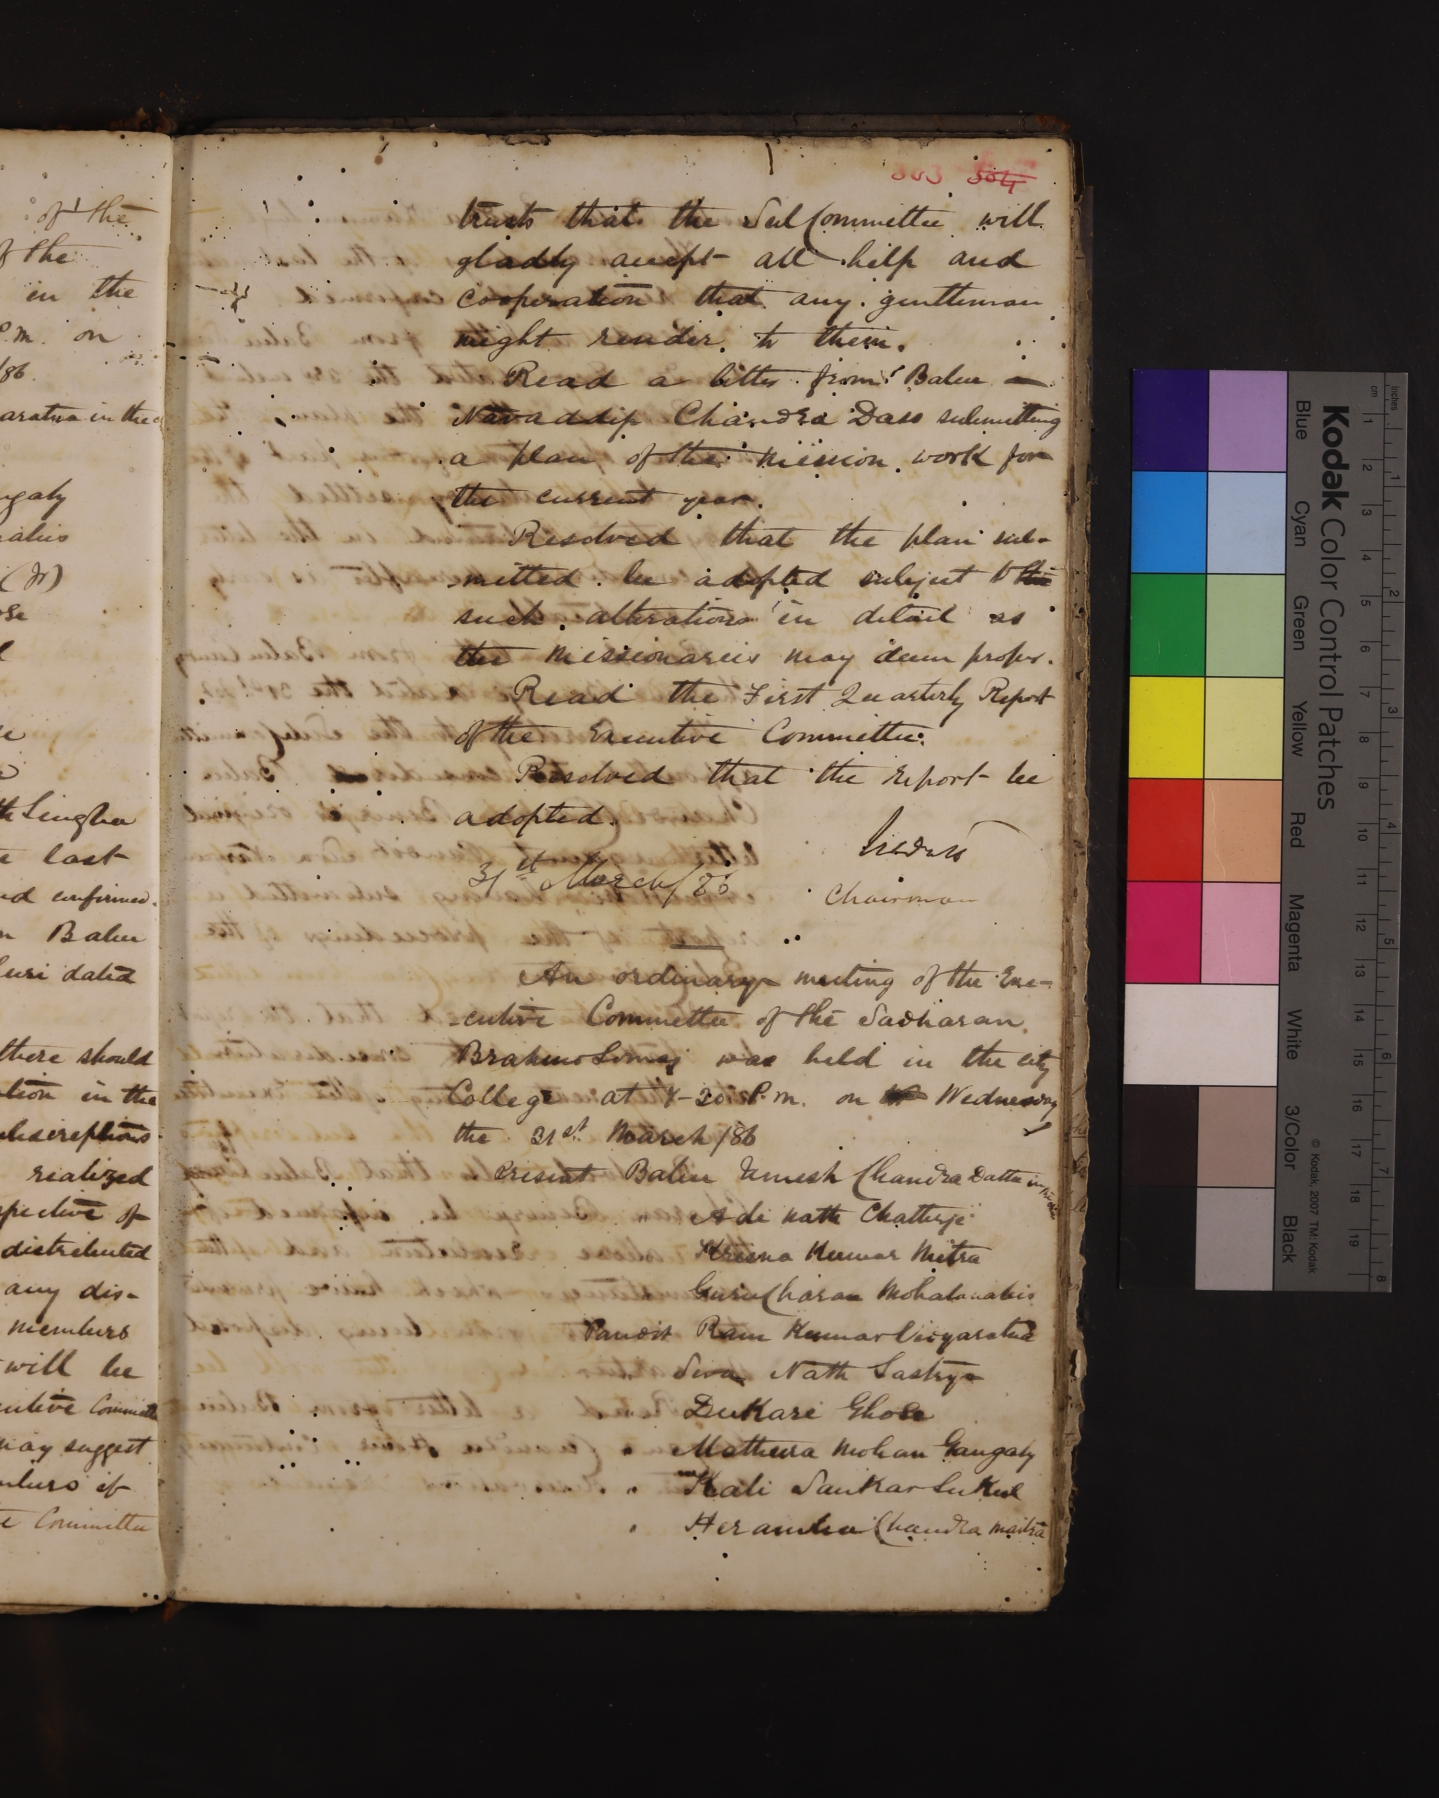 of the
of the
in the
P.M. on
/86.
aratna in the
ngaly
(Jr)
ose
th Singha
last
nd confirmed.
Babu
uri dated
there should
tion in the
subscriptions
realized
spective of
distributed
any dis-
members
will be
cutive Committee
may suggest
mbers if
Committee
303 304
trusts that the Sub Committee will
gladly accept all help and
cooperation that any gentleman
might render to them.
Read a letter from Babu
Navaddip Chandra Dass submitting
a plan of the mission work for
the current year.
Resolved that the plan sub-
mitted be adopted subject to the
such alterations in detail as
the missionareis may deem proper.
Read the First Quarterly Report
of the Executive Committee.
Resolved that the report be
adopted.
31st March/86
Chairman
An ordinary meeting of the Exe-
cutive Committee of the Sadharan
Brahmo Somaj was held in the city
College at 4-30 P.m. on Wednesday
the 31st March /86
Present Babu Umesh Chandra Datta in the
" Adi nath Chatterje
Krisna Kumar Mitra
Guru Charan Mohalanabis
Pandit Ram Kumar Vidyaratna
Siva Nath Sastry
Dukari Ghose
Mathura Mohan Gangaly
" Kali Sankar Sukul
" Heramba Chandra Maitra
Kodak Color Control Patches
Blue Cyan Green Yellow Red Magenta White 3/Color Black
© Kodak, 2007 TM: Kodak
cm 1 2 3 4 5 6 7 8 9 10 11 12 13 14 15 16 17 18 19
Inches 1 2 3 4 5 6 7 8